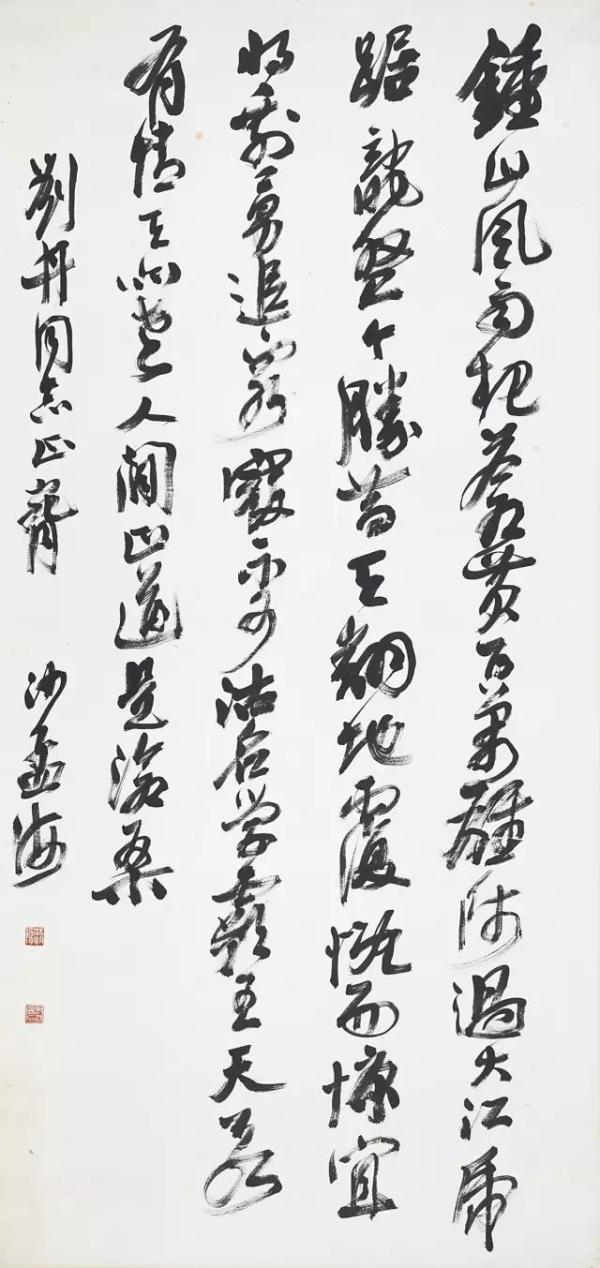 鍾山風雨起蒼黃百萬雄師過大江虎
踞龍盤今勝昔天翻地覆慨而慷宜
將剩勇追窮寇不可沽名学霸王天若
有情天亦老人間正道是滄桑
劉丹同志正
沙孟海